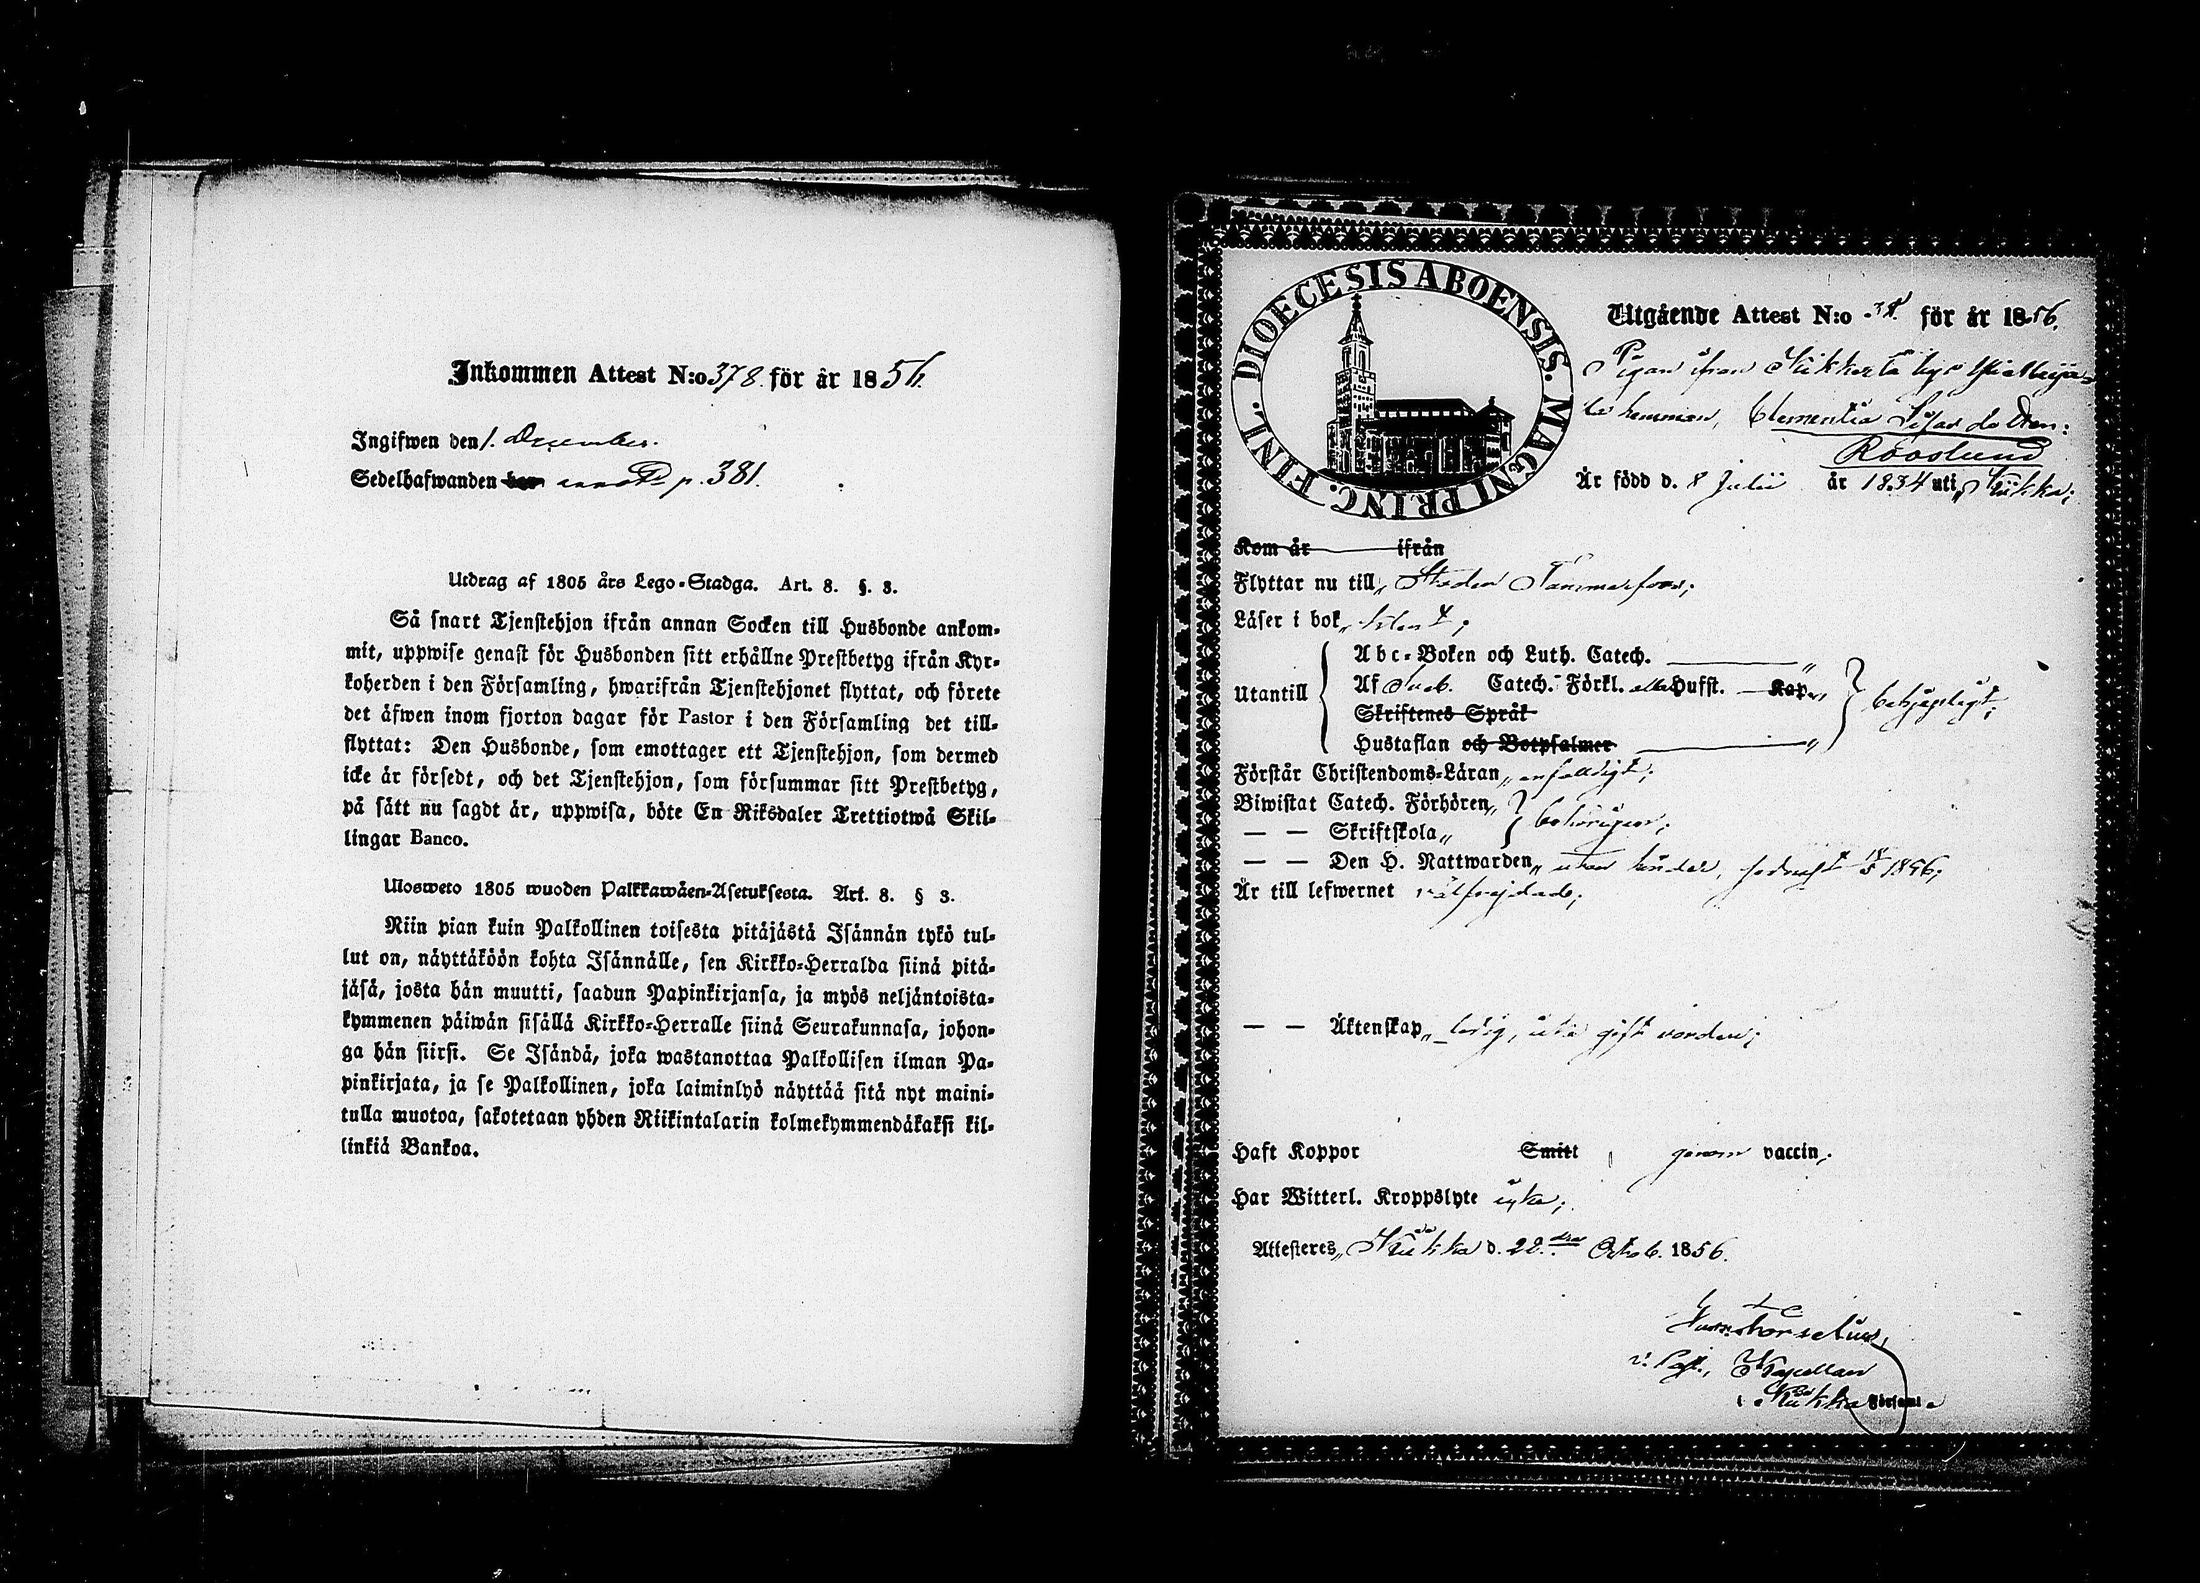 Inkommen Attest N:o 378. för år 1856.
Ingifwen den 1. December.
Sedelhafwanden har annot. p. 381.
Utdrag af 1805 års Lego-Stadga. Art. 8. §. 3.
Så snart Tjenstehjon ifrån annan Socken till Husbonde ankom-
mit, uppwise genast för Husbonden sitt erhållne Prestbetyg ifrån Kyr-
koherden i den Församling, hwarifrån Tjenstehjonet flyttat, och förete
det äfwen inom fjorton dagar för Pastor i den Församling det till-
flyttat: Den Husbonde, som emottager ett Tjenstehjon, som dermed
icke är försedt, och det Tjenstehjon, som försummar sitt Prestbetyg,
på sätt nu sagdt är, uppwisa, böte En Riksdaler Trettiotwå Skil-
lingar Banco.
Ulosweto 1805 wuoden Palkkawäen-Asetuksesta. Art. 8. § 3.
Niin pian kuin Palkollinen toisesta pitäjästä Isännän tykö tul-
lut on, näyttäköön kohta Isännälle, sen Kirkko-Herralda siinä pitä-
jäsä, josta hän muutti, saadun Papinkirjansa, ja myös neljäntoista-
kymmenen päiwän sisällä Kirkko-Herralle siinä Seurakunnasa, johon-
ga hän siirsi. Se Isändä, joka wastanottaa Palkollisen ilman Pa-
pinkirjata, ja se Palkollinen, joka laiminlyö näyttää sitä nyt maini-
tulla muotoa, sakotetaan yhden Riikintalarin kolmekymmendäkaksi kil-
linkiä Bankoa.
DIOECESIS ABOENSIS. MAGNI PRINC. FINL.
Utgående Attest N:o 38. för år 1856.
Pigan ifrån
hemman, Clementia
Rooslund
Är född d. 8 Julii år 1834 uti
Kom år ifrån
Flyttar nu till Staden Tammerfors;
Läser i bok
Utantill
Abc-Boken och Luth. Catech.
Af Sveb. Catech. Förkl. alla Hufst. Kap.
Skriftenes Språk
Hustaflan och Botpsalmer
behjelpligt;
Förstår Christendoms-Läran enfaldigt;
Biwistat Catech. Förhören
— — Skriftskola
behörigen;
— — Den H. Nattwarden utan hinder, sednast 1856;
Är till lefwernet välfrejdad;
— — Äktenskap ledig,
Haft Koppor Smitt genom vaccin;
Har Witterl. Kroppslyte icke;
Attesteres d. 22. Octob. 1856.
v. Past., Kapellan
i Församl